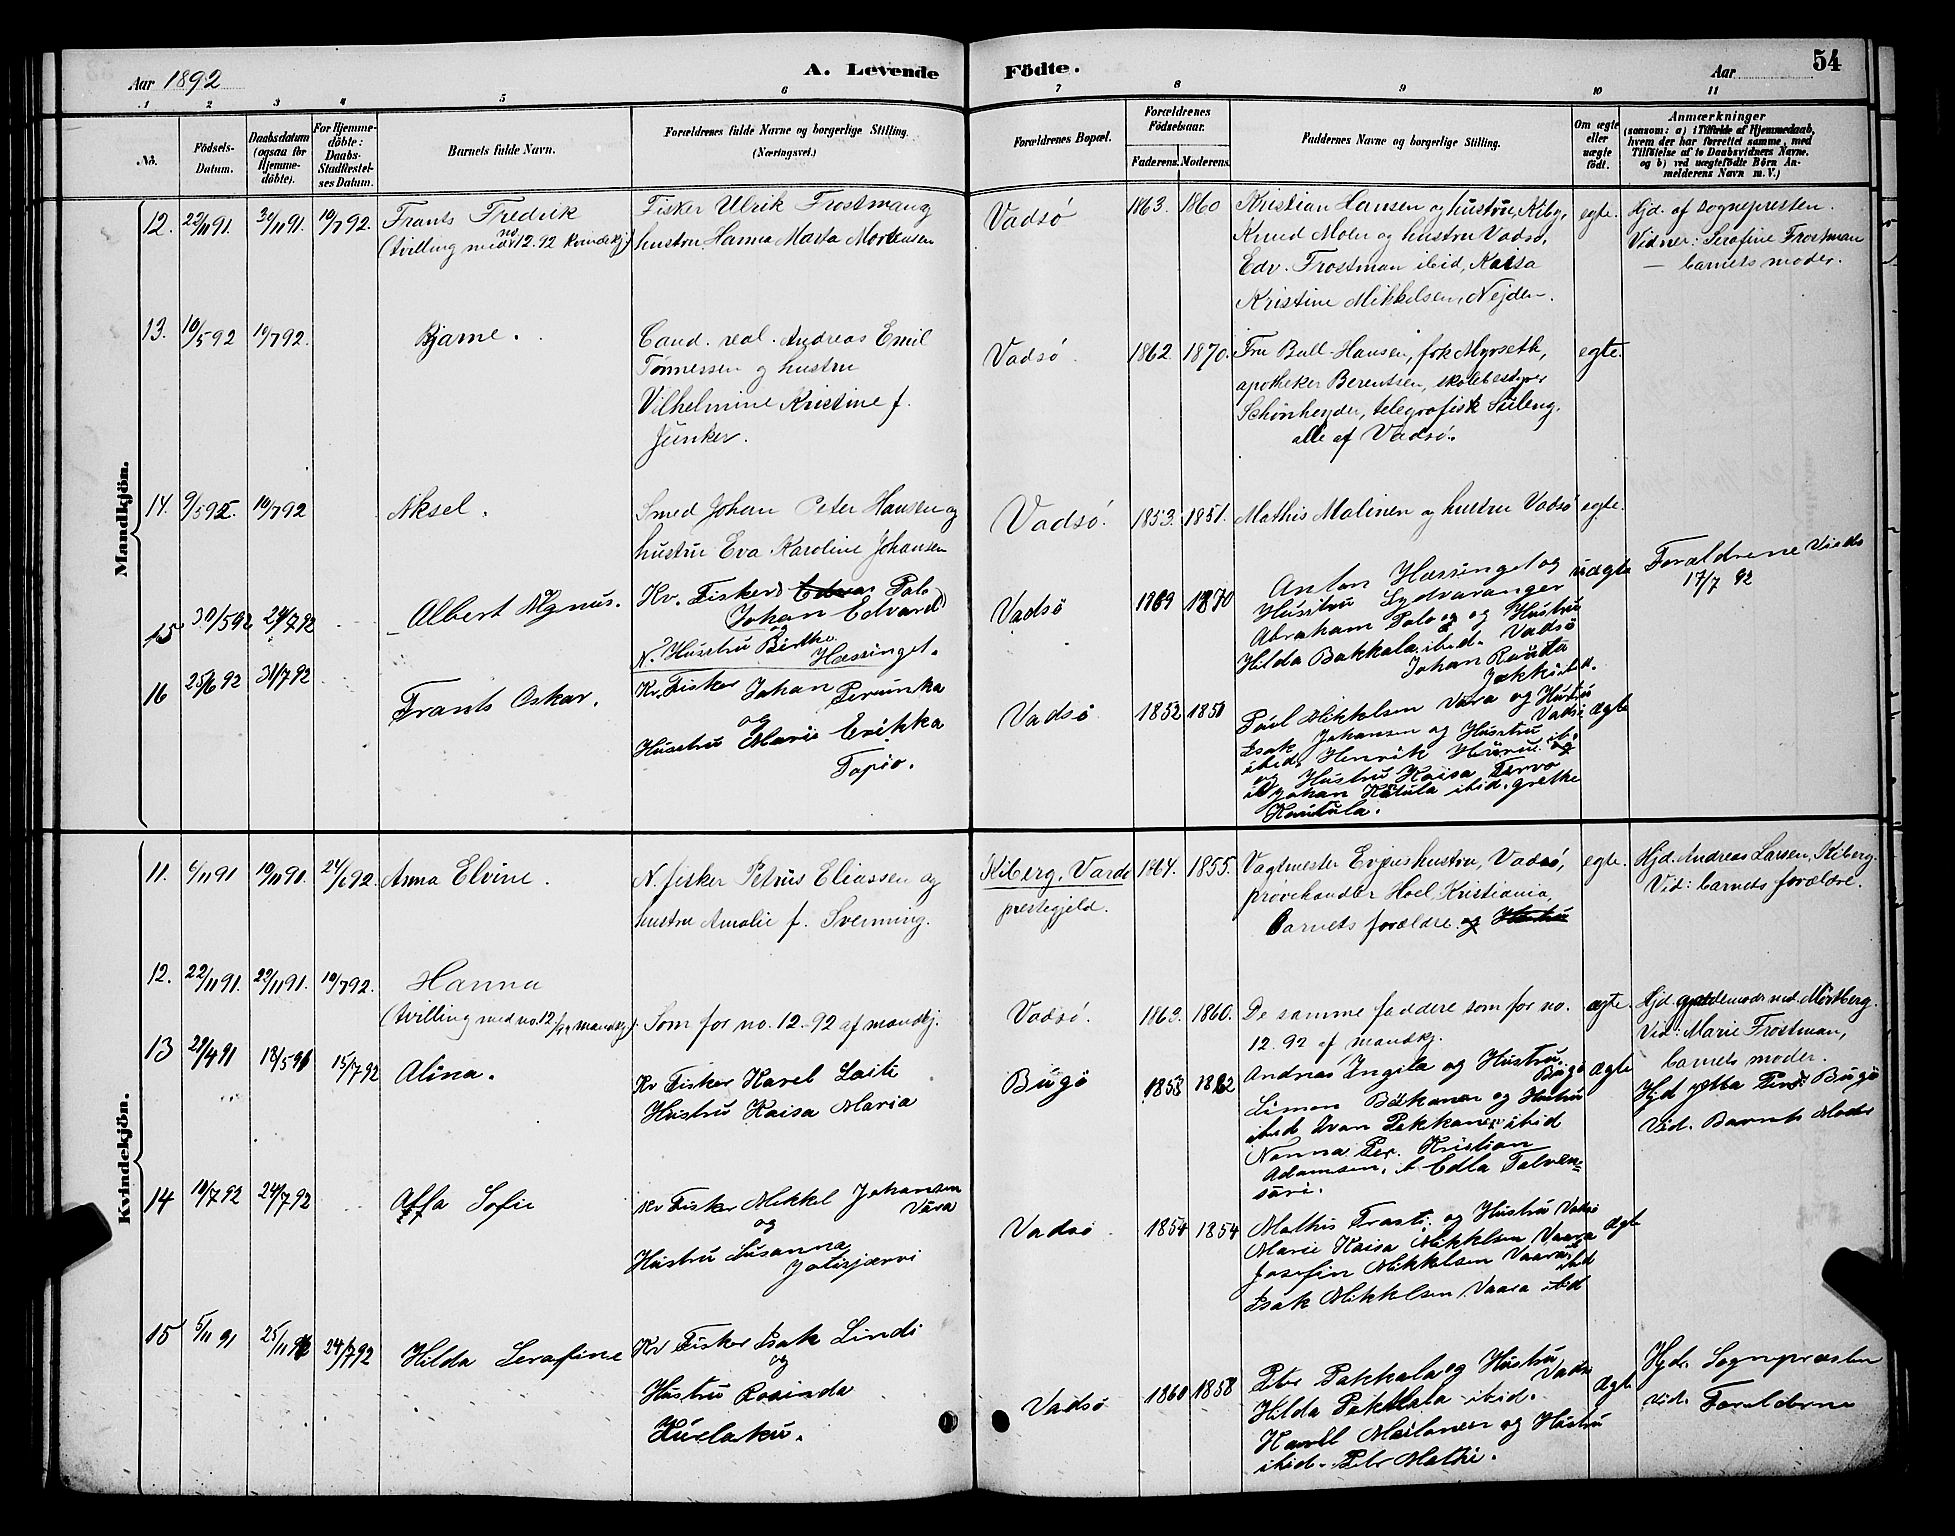 Aar 1892
A. Levende Födte.
Aar
54
1 2 3 4 5 6 7 8 9 10 11
No.
Födsels-Datum.
Daabsdatum (ogsaa for Hjemme-döbte).
For Hjemme-döbte: Daabs-Stadfestel-ses Datum.
Barnets fulde Navn.
Forældrenes fulde Navne og borgerlige Stilling.
(Næringsvei.)
Forældrenes Bopæl.
Forældrenes Födselsaar.
Faderens. Moderens.
Faddernes Navne og borgerlige Stilling.
Om ægte eller uægte födt.
Anmærkninger
(saasom: a) i Tilfælde af Hjemmedaab,
hvem der har forrettet samme, med
Tilföielse af to Daabsvidners Navne.
og b) ved uægtefödte Börn An-
melderens Navn m. V.)
Mandkjön.
12. 22/11 91. 30/11 91. 10/7 92.
Frants Fredrik
(tvilling med no. 12. 92 kvindekj.)
Fisker Ulrik Frostman og
hustru Hanna Marta Mortensen
Vadsö
1863. 1860
Kristian Hansen og hustru, Kiby,
Knud Moler og hustru Vadsö,
Edv. Frostman ibid, Kaisa
Kristine Mikkelsen, Nejden.
egte.
Hjd. af sognepresten.
Vidner: Serafine Frostman
— barnets moder.
13. 10/5 92 10/7 92.
Bjarne.
Cand. real. Andreas Emil
Tönnessen og hustru
Vilhelmine Kristine f.
Junker.
Vadsö.
1862. 1870.
Fru Bull-Hansen, frk Myrseth,
apotheker Berentsen, skolebestyrer
Schönheyder, telegrafist
alle af Vadsö.
egte.
14. 9/5 92. 10/7 92
Aksel.
Smed Johan Peter Hansen og
hustru Eva Karoline Johansen
Vadsö.
1853. 1851.
Mathis Malinen og hustru Vadsö
egte.
15 30/5 92 24/7 92
Albert Magnus.
Kv. Fisker Palo
Johan Edvard
og
N. Hustru Birthe
Hæssinget.
Vadsö
1869 1870
Anton Hæssinget og
Hustru Sydvaranger
Abraham Palo og Hustru
Hilda Bakkala ibid. Vadsö
Johan Rauta
uægte
Foraldrene Viede
17/7 92
16 25/6 92 31/7 92
Frants Oskar.
Kv. Fisker Johan Perunka
og
Hustru Marie Erikka
Tapio.
Vadsö
1852 1851
Paul Mikkelsen Vara og Hustru
Vadsö
Isak Johansen og Hustru
ibid, Henrik
og Hustru Kaisa Tervo
Johan ibid. Grethe
Ægte
Kvindekjön.
11. 6/11 91 19/11 91. 24/6 92.
Anna Elvine.
N. fisker Petrus Eliassen og
hustru Amalie f. Svenning.
Kiberg, Vardö
prestegjeld.
1864. 1855.
Vagtmester Erpus hustru, Vadsö,
pröhandler Hoel, Kristiania,
barnets forældre.
egte.
Hjd. Andreas Larsen, Kiberg.
Vid: barnets forældre.
12. 22/11 91. 22/11 91. 10/7 92.
Hanna
(tvilling med no. 12/92 mandkj.)
Som for no. 12-92 af mandkj.
Vadsö.
1863. 1860.
De samme faddere som for no.
12. 92 af mandkj.
ægte.
Hjd. Mörtberg.
Vid: Marie Frostman,
barnets moder.
13 29/4 91 18/5 91 15/7 92
Alina.
Kv Fisker Karel Laiti
Hustru Kaisa Maria
Bugö
1853 1862
Andras Ingila og Hustru
Bugö
Simon og Hustru
ibid Ivan ibid
Nanna Per. Kristian
Adamsen, Edla
Ægte
Hjd Bugö
Vid. Barnets Moder
14 10/7 92 24/7 92
Affa Sofie
Kv Fisker Mikkel Johansen
Vara
og
Hustru Susanna
Jolisjærvi
Vadsö
1854 1854
Mathis Frasti og Hustru Vadsö
Marie Kaisa Mikkelsen Vaara
Josefin Mikkelsen Vaara ibid
Isak Mikkelsen Vaara ibid
Ægte
15 5/11 91 25/11 91 24/7 92
Hilda Serafine
Kv Fisker Isak Lindi
og
Hustru Rosinda
Vadsö
1860 1858
Peter Pakkala og Hustru
Vadsö
Hilda Pakkala ibid.
Karel Mailanen og Hustru
ibid. Peter Mathi.
Ægte
Hjd. Sognepræsten
Vid. Foralderne